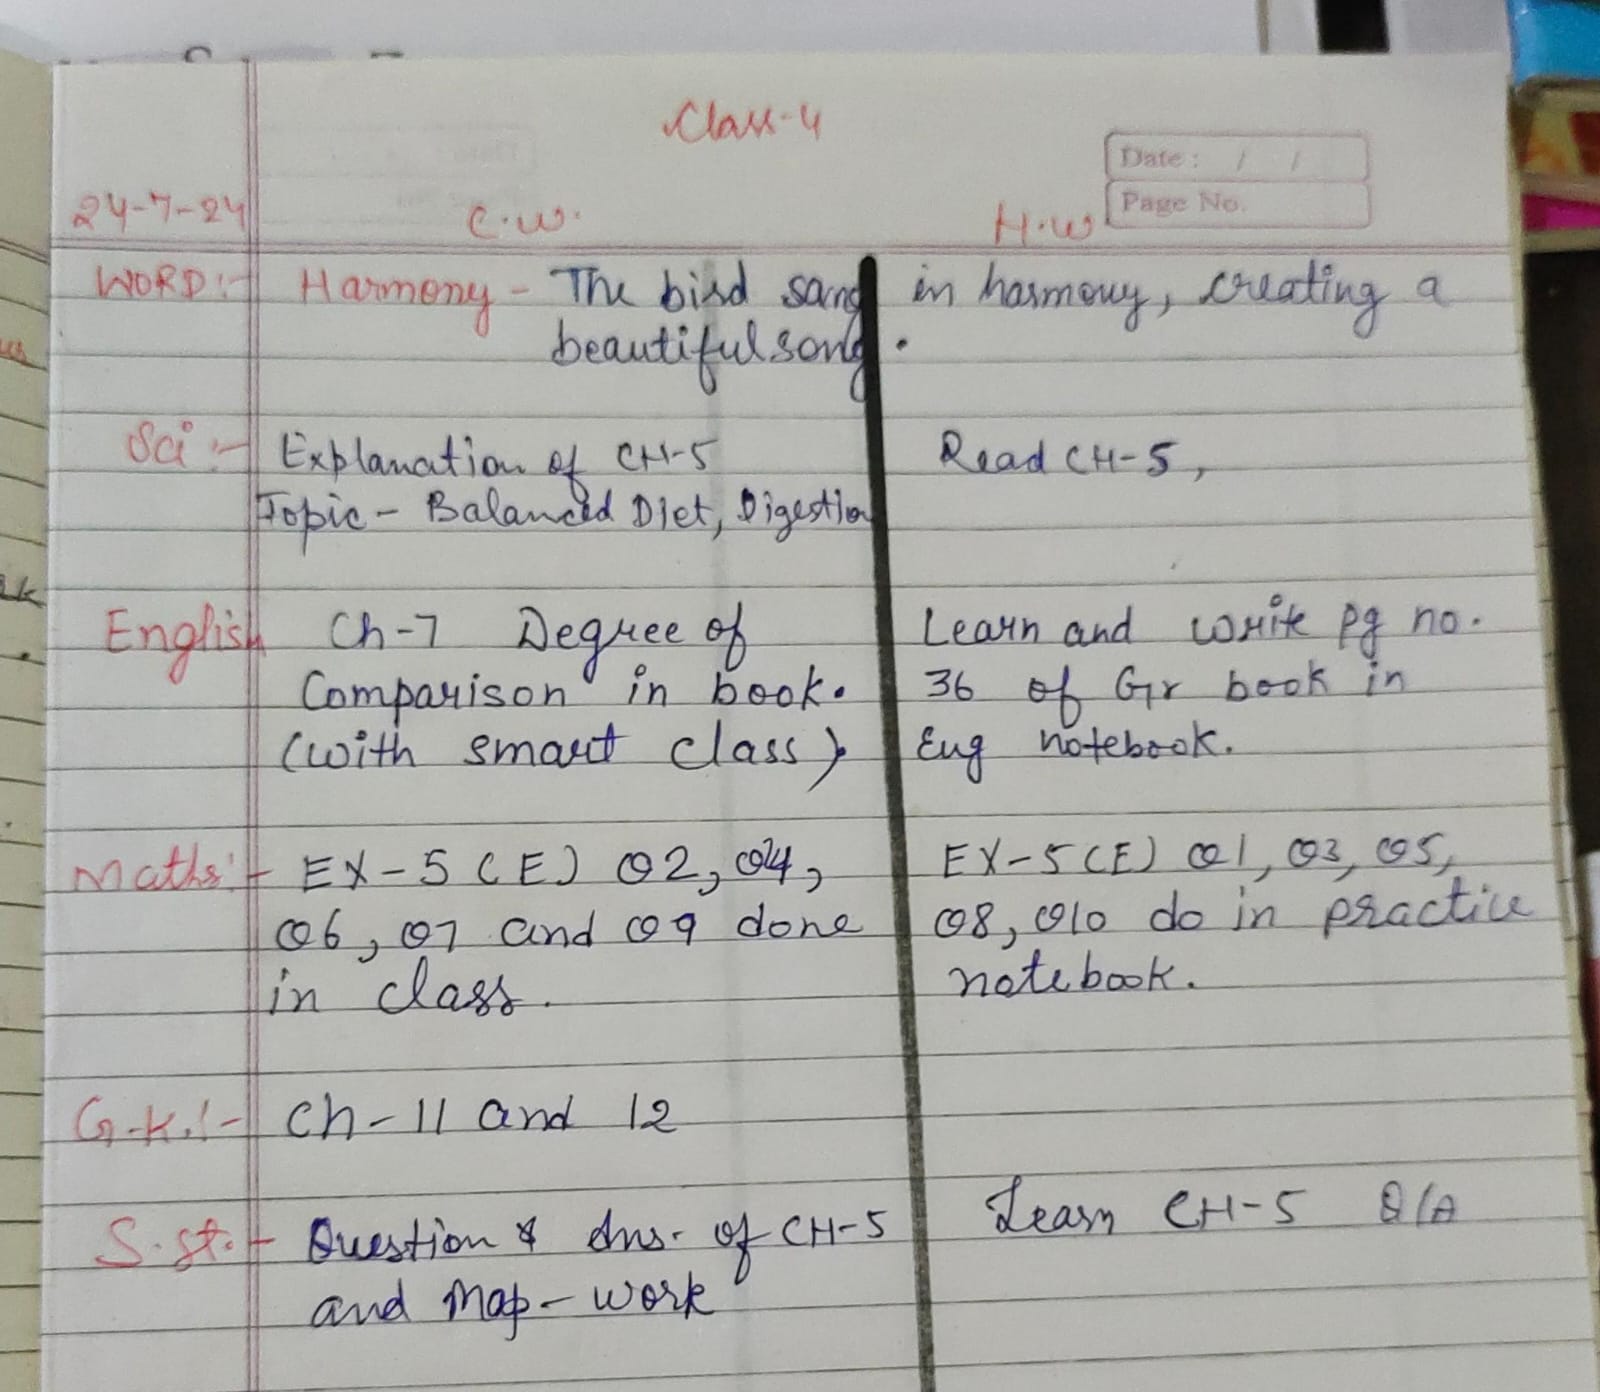 Class-4
Date: / /
Page No.
24-7-24 C.W. H.W
WORD:- Harmony - The bird sang in harmony, creating a
beautiful song.
Sci:- Explanation of CH-5 Read CH-5,
Topic - Balanced Diet, Digestion
English Ch-7 Degree of Learn and write pg no.
Comparison in book. 36 of Gr book in
(with smart class) Eng notebook.
Maths:- EX-5 (E) Q2, Q4, EX-5 (E) Q1, Q3, Q5,
Q6, Q7 and Q9 done Q8, Q10 do in practice
in class. notebook.
G.K.:- Ch-11 and 12
S.st.:- Question & Ans. of CH-5 Learn CH-5 Q/A
and Map-work